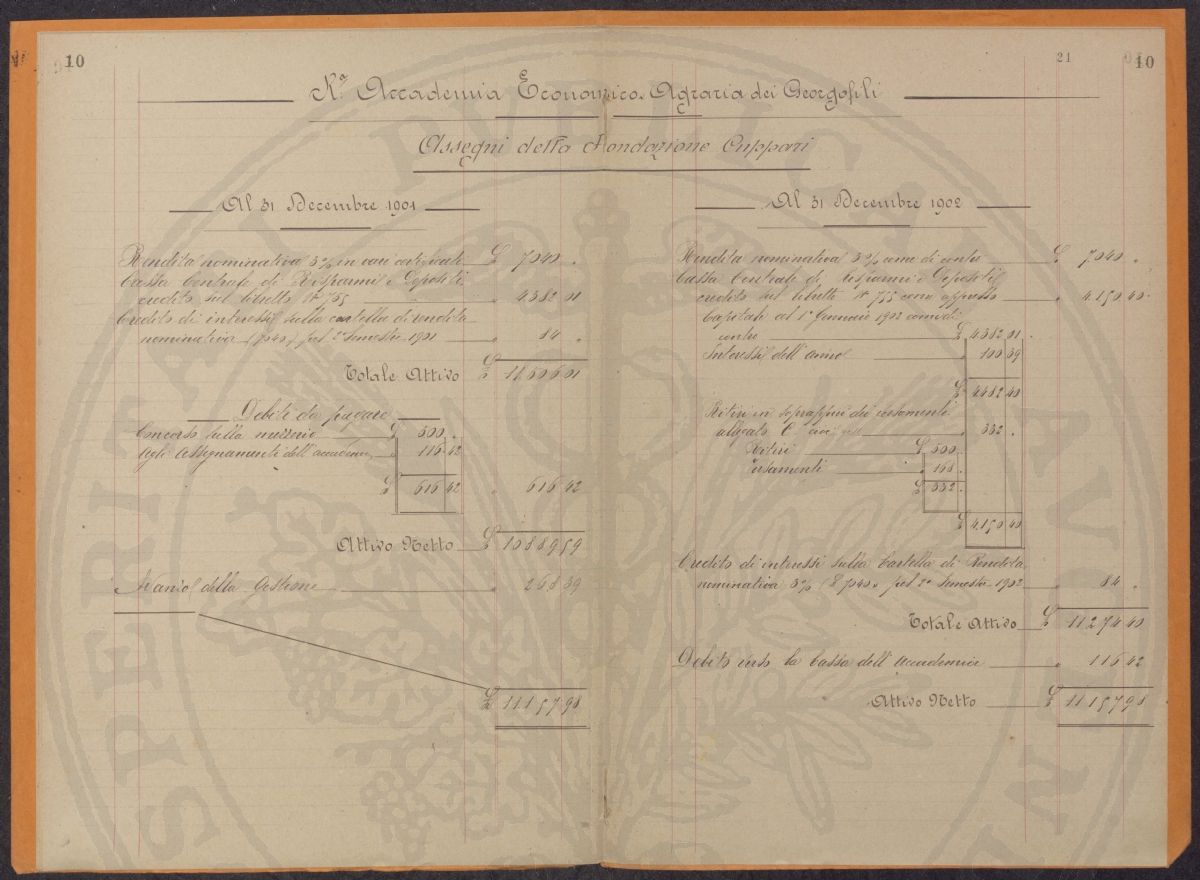 10
21
10
Rª Accademia Economico-Agraria dei Georgofili
Assegni della Fondazione Cuppari
Al 31 Decembre 1901
Rendita nominativa 3% in vari certificati £ 7040 "
Cassa Centrale di Risparmi e Depositi
credito sul libretto Nº 755 " 4382 01
Credito di interessi sulla cartella di rendita
nominativa 7040 pel 2º Semestre 1901 " 84 "
Totale Attivo £ 11506 01
Debiti da pagare
Concorso £ 500 "
agli Assegnamenti dell'accademia " 116 42
£ 616 42 " 616 42
Attivo Netto £ 10889 59
Avanzo della Gestione " 268 39
£ 11157 98
Al 31 Decembre 1902
Rendita nominativa 3% come di contro £ 7040 "
Cassa Centrale di Risparmi e Depositi
credito sul libretto Nº 755 come appresso " 4150 40
Capitale al 1º Gennaio 1902 come di
contro £ 4382 01
Interessi dell'anno " 100 39
£ 4482 40
Ritiri in soprappiù dei versamenti
allegato C cioè " 332 "
Ritiri £ 500 "
Versamenti " 168 "
£ 332 "
£ 4150 40
Credito di interessi sulla Cartella di Rendita
nominativa 3% (£ 7040 " pel 2º Semestre 1902 " 84 "
Totale Attivo £ 11274 40
Debito verso la Cassa dell'Accademia " 116 42
Attivo Netto £ 11157 98
SPERITATI PUBLICAE